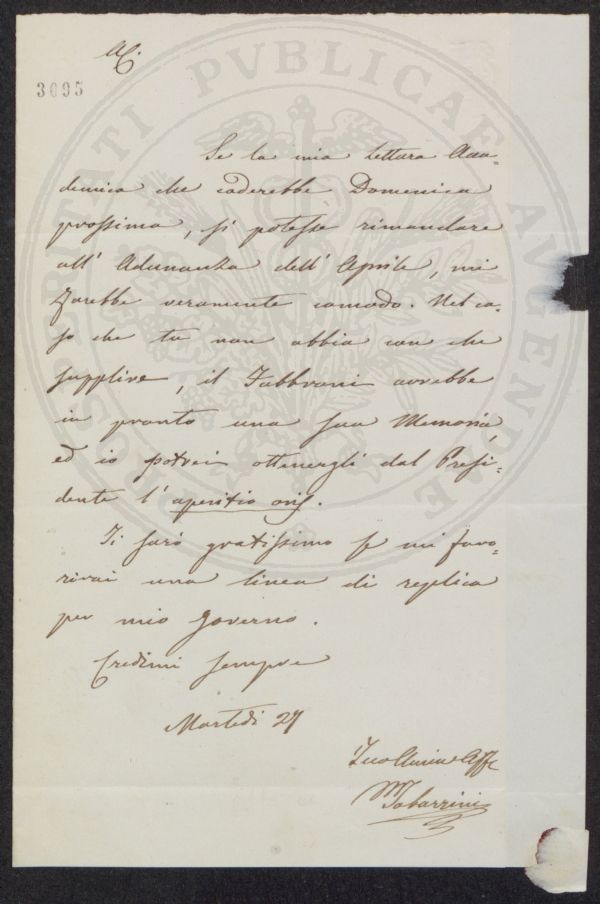 AC.
3695
Se la mia lettura Acca-
demica che caderebbe Domenica
prossima, si potesse rimandare
all' Adunanza dell' Aprile, mi
sarebbe veramente comodo. Nel ca-
so che tu non abbia con che
supplire, il Fabbroni avrebbe
in pronto una sua Memoria,
ed io potrei ottenergli dal Presi-
dente l' aperitio oris.
Ti sarò gratissimo se mi favo-
rirai una linea di replica
per mio governo.
Credimi sempre
Martedì 27
Tuo Amico Affe
M Tabarrini
PROSPERITATI PVBLICAE AVGENDAE